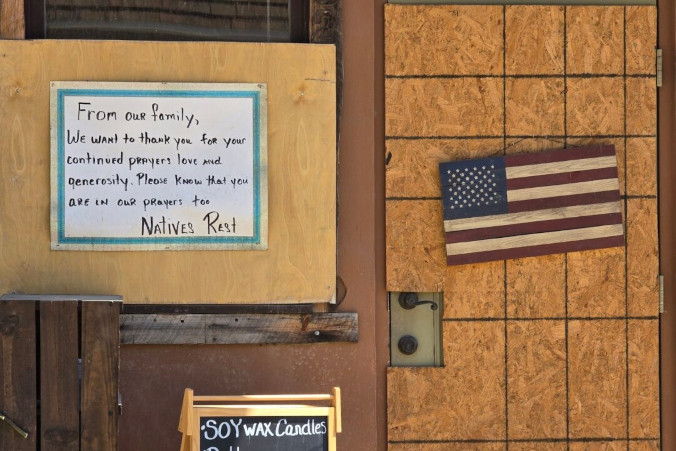 From our family,
We want to thank you for your
continued prayers love and
generosity. Please know that you
are in our prayers too
Natives Rest
SOY wax Candles